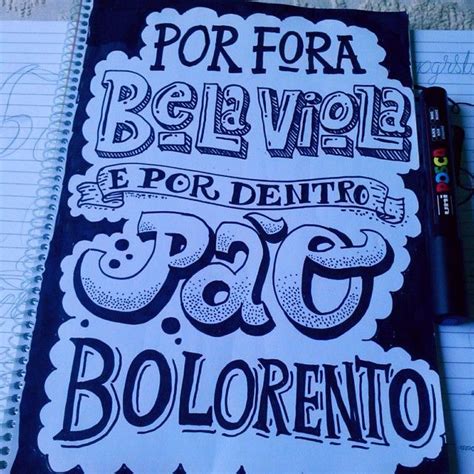 POR FORA
BELA VIOLA
E POR DENTRO
PÃO
BOLORENTO
POSCA